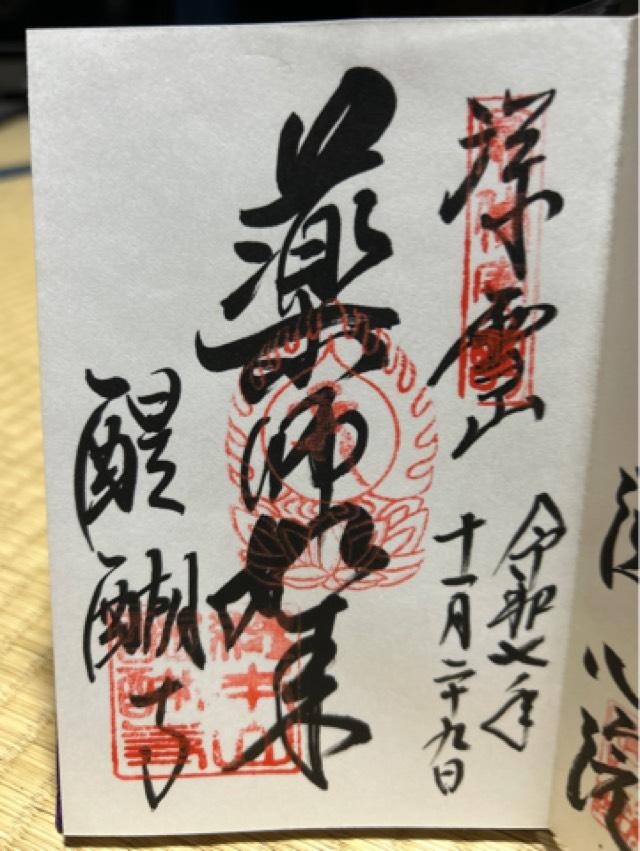 深雪山
令和七年
十一月二十九日
薬師如来
醍醐寺